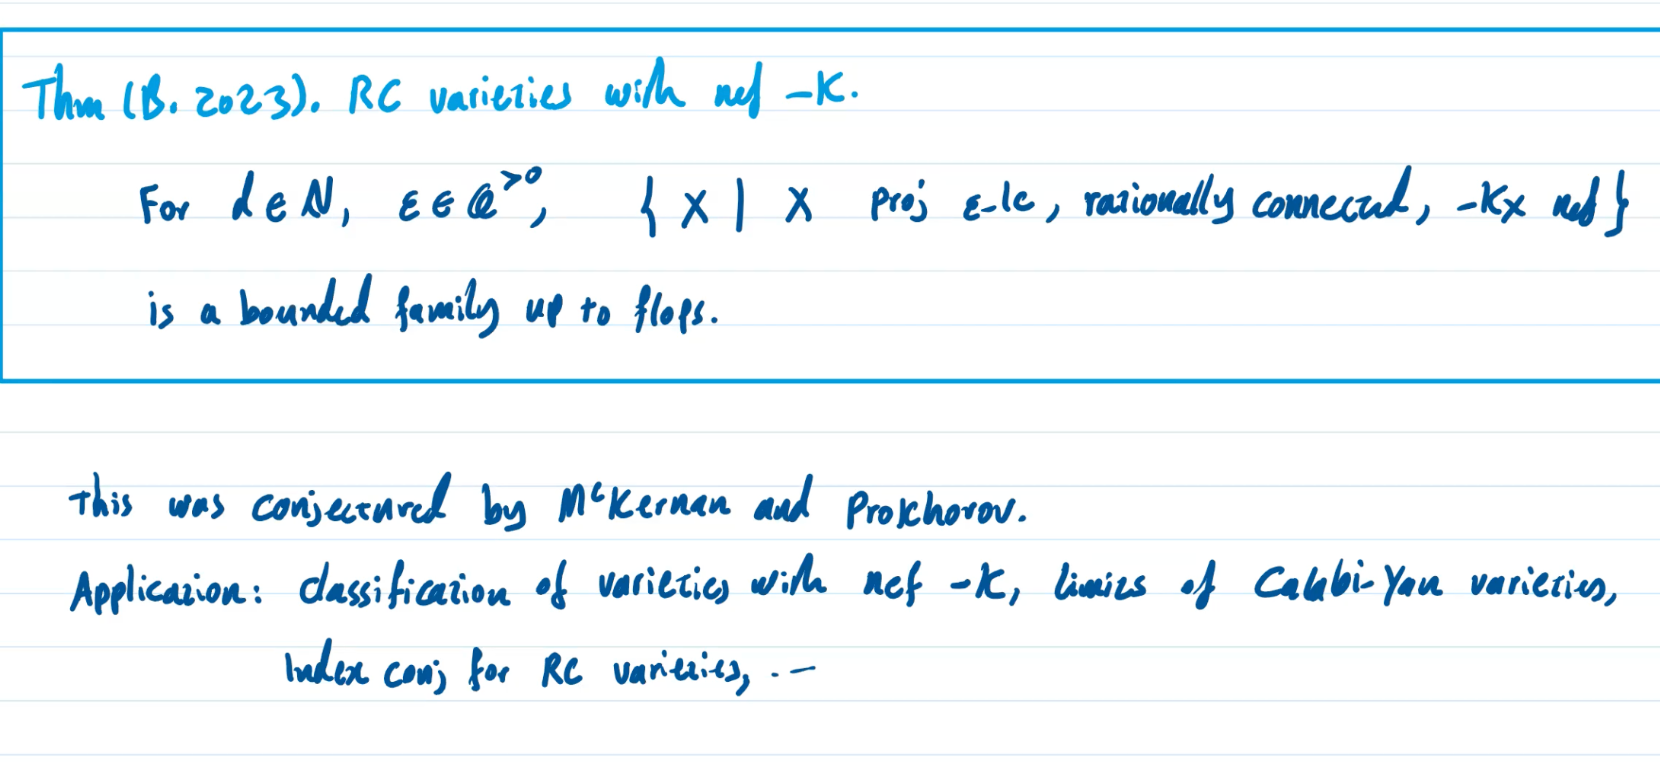 Thm (B. 2023). RC varieties with nef -K.
For d ∈ ℕ, ε ∈ ℚ^{>0}, { X | X proj ε-lc, rationally connected, -K_X nef }
is a bounded family up to flops.
This was conjectured by McKernan and Prokhorov.
Application: classification of varieties with nef -K, limits of Calabi-Yau varieties,
Index conj for RC varieties, ...